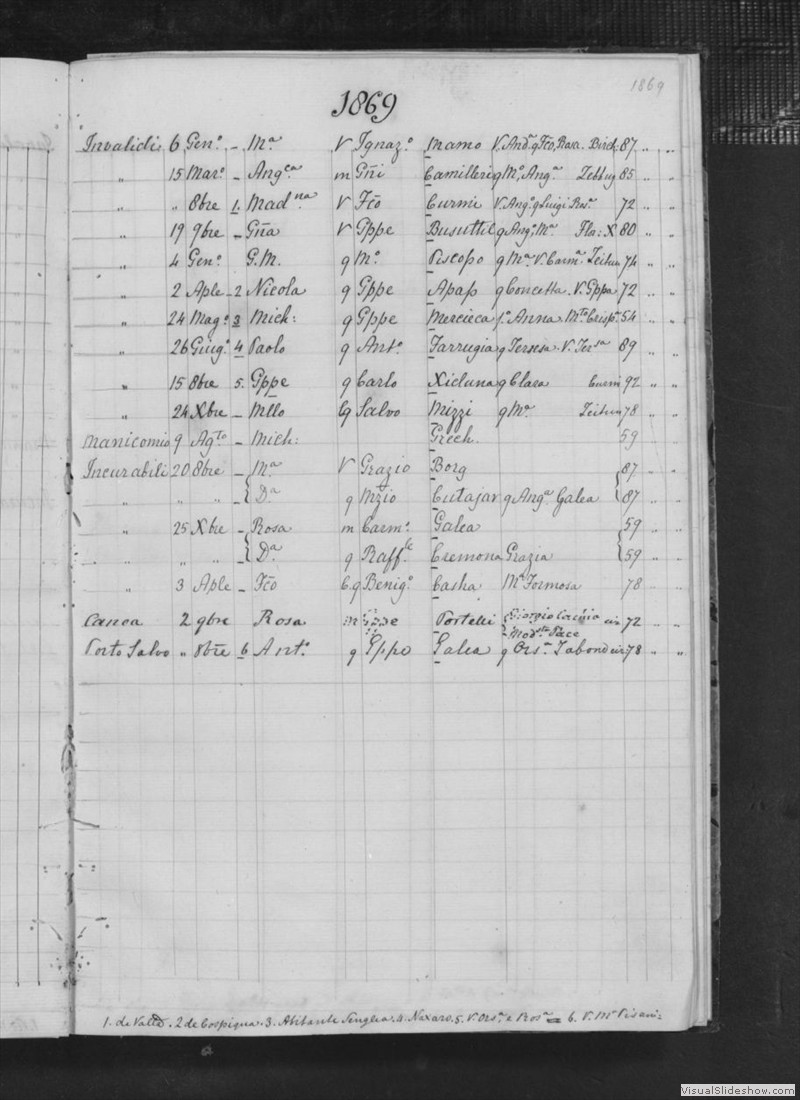 1869
1869
Invalidi 6 Gen.º - Mª V Ignaz.º Mamo V. And.ª q Fco, Rosa. Birch: 87 " "
" 15 Mar.º - Ang.ca m Gñi Camilleri q Mº, Ang.ª Zebbug 85 " "
" " 8bre 1. Mad.na V Fco Curmi V. Ang.º q Luigi Ros.ª 72 " "
" 19 9bre - Gña V Gppe Busuttil q Ang.º, Mª Flor: X 80 " "
" 4 Gen.º G.M. q Mº Piscopo q Mª V. Carm.ª Zeitun 74 " "
" 2 Aple - 2 Nicola q Gppe Apap q Concetta. V. Gppa 72 " "
" 24 Mag.º 3 Mich: q Gppe Mercieca Anna. Crisp.º 54 " "
" 26 Giug.º 4 Paolo q Ant.º Farrugia q Teresa. V. Ter.sa 89 " "
" 15 8bre 5. Gppe q Carlo Xicluna q Clara Curmi 92 " "
" 24 Xbre - Mllo q Salvo Mizzi q Mª Zeitun 78 " "
Manicomio 9 Ag.to - Mich: Grech. 59 " "
Incurabili 20 8bre - Mª V Grazio Borg 87 " "
" " " - Dª q Mzio Cutajar q Ang.ª Galea 87 " "
" 25 Xbre - Rosa m Carm.º Galea 59 " "
" " " - Dª q Raff.le Cremona Grazia 59 " "
" 3 Aple - Fco C. q Benig.º Casha Mª Formosa 78 " "
Canea 2 9bre Rosa m Gppe Portelli Giorgio 72 " "
Mod.ta Pace
Porto Salvo " 8bre 6 Ant.º q Gppe Galea q Ors.ª 78 " "
1. de Vallª. 2 de Cospiqua. 3. Abitante Senglea. 4. Naxaro. 5. V. Ors.ª e Ros.ª = 6. V. Mª Pisani:
VisualSlideshow.com